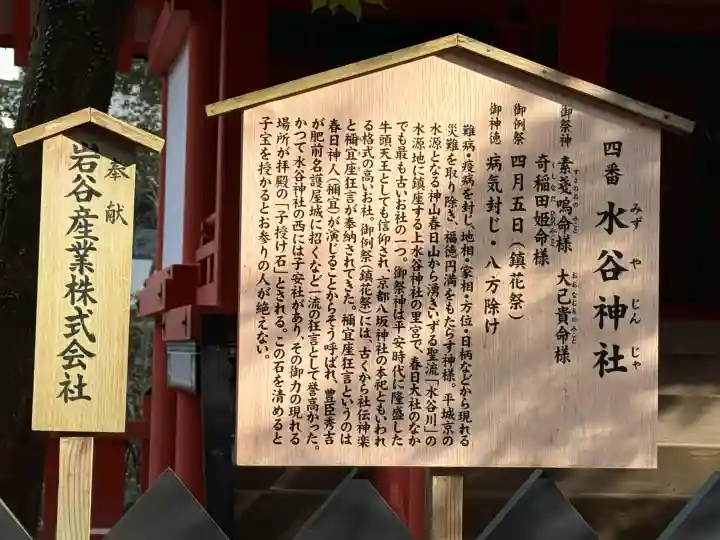 四番 水谷神社
みずやじんじゃ
御祭神 素戔嗚命様 大己貴命様
すさのおのみこと おおなむちのみこと
奇稲田姫命様
くしいなだひめのみこと
御例祭 四月五日（鎮花祭）
御神徳 病気封じ・八方除け
難病・疫病を封じ、地相・家相・方位・日柄などから現れる
災難を取り除き、福徳円満をもたらす神様。平城京の
水源となる神山春日山から湧きいずる聖流「水谷川」の
水源地に鎮座する上水谷神社の里宮で、春日大社のなか
でも最も古いお社の一つ。御祭神は平安時代に隆盛した
牛頭天王としても信仰され、京都八坂神社の本祀ともいわれ
る格式の高いお社。御例祭（鎮花祭）には、古くから社伝神楽
と禰宜座狂言が奉納されてきた。禰宜座狂言というのは
春日神人（禰宜）が演じることからそう呼ばれ、豊臣秀吉
が肥前名護屋城に招くなど一流の狂言として誉高かった。
かつて水谷神社の西には子安社があり、その御力の現れる
場所が拝殿の「子授け石」とされる。この石を清めると
子宝を授かるとお参りの人が絶えない。
奉献
岩谷産業株式会社